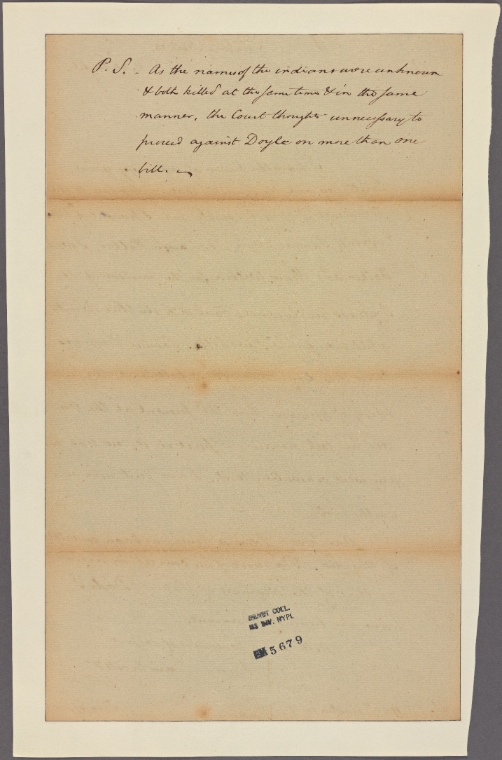 P.S. As the names of the indians were unknown
& both killed at the same time & in the same
manner, the Court thought unnecessary to
proceed against Doyle on more than one
bill.
EMMET COLL.
MS DIV. NYPL
EM 5679